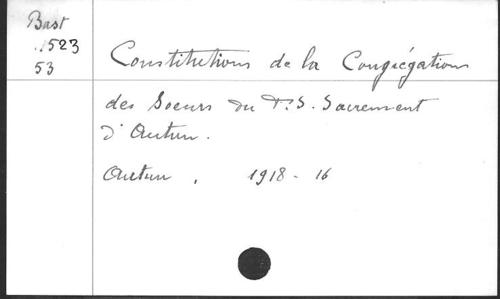 Bast
1523
53
Constitutions de la Congrégation
des Soeurs du T. S. Sacrement
d'Autun.
Autun, 1918 - 16